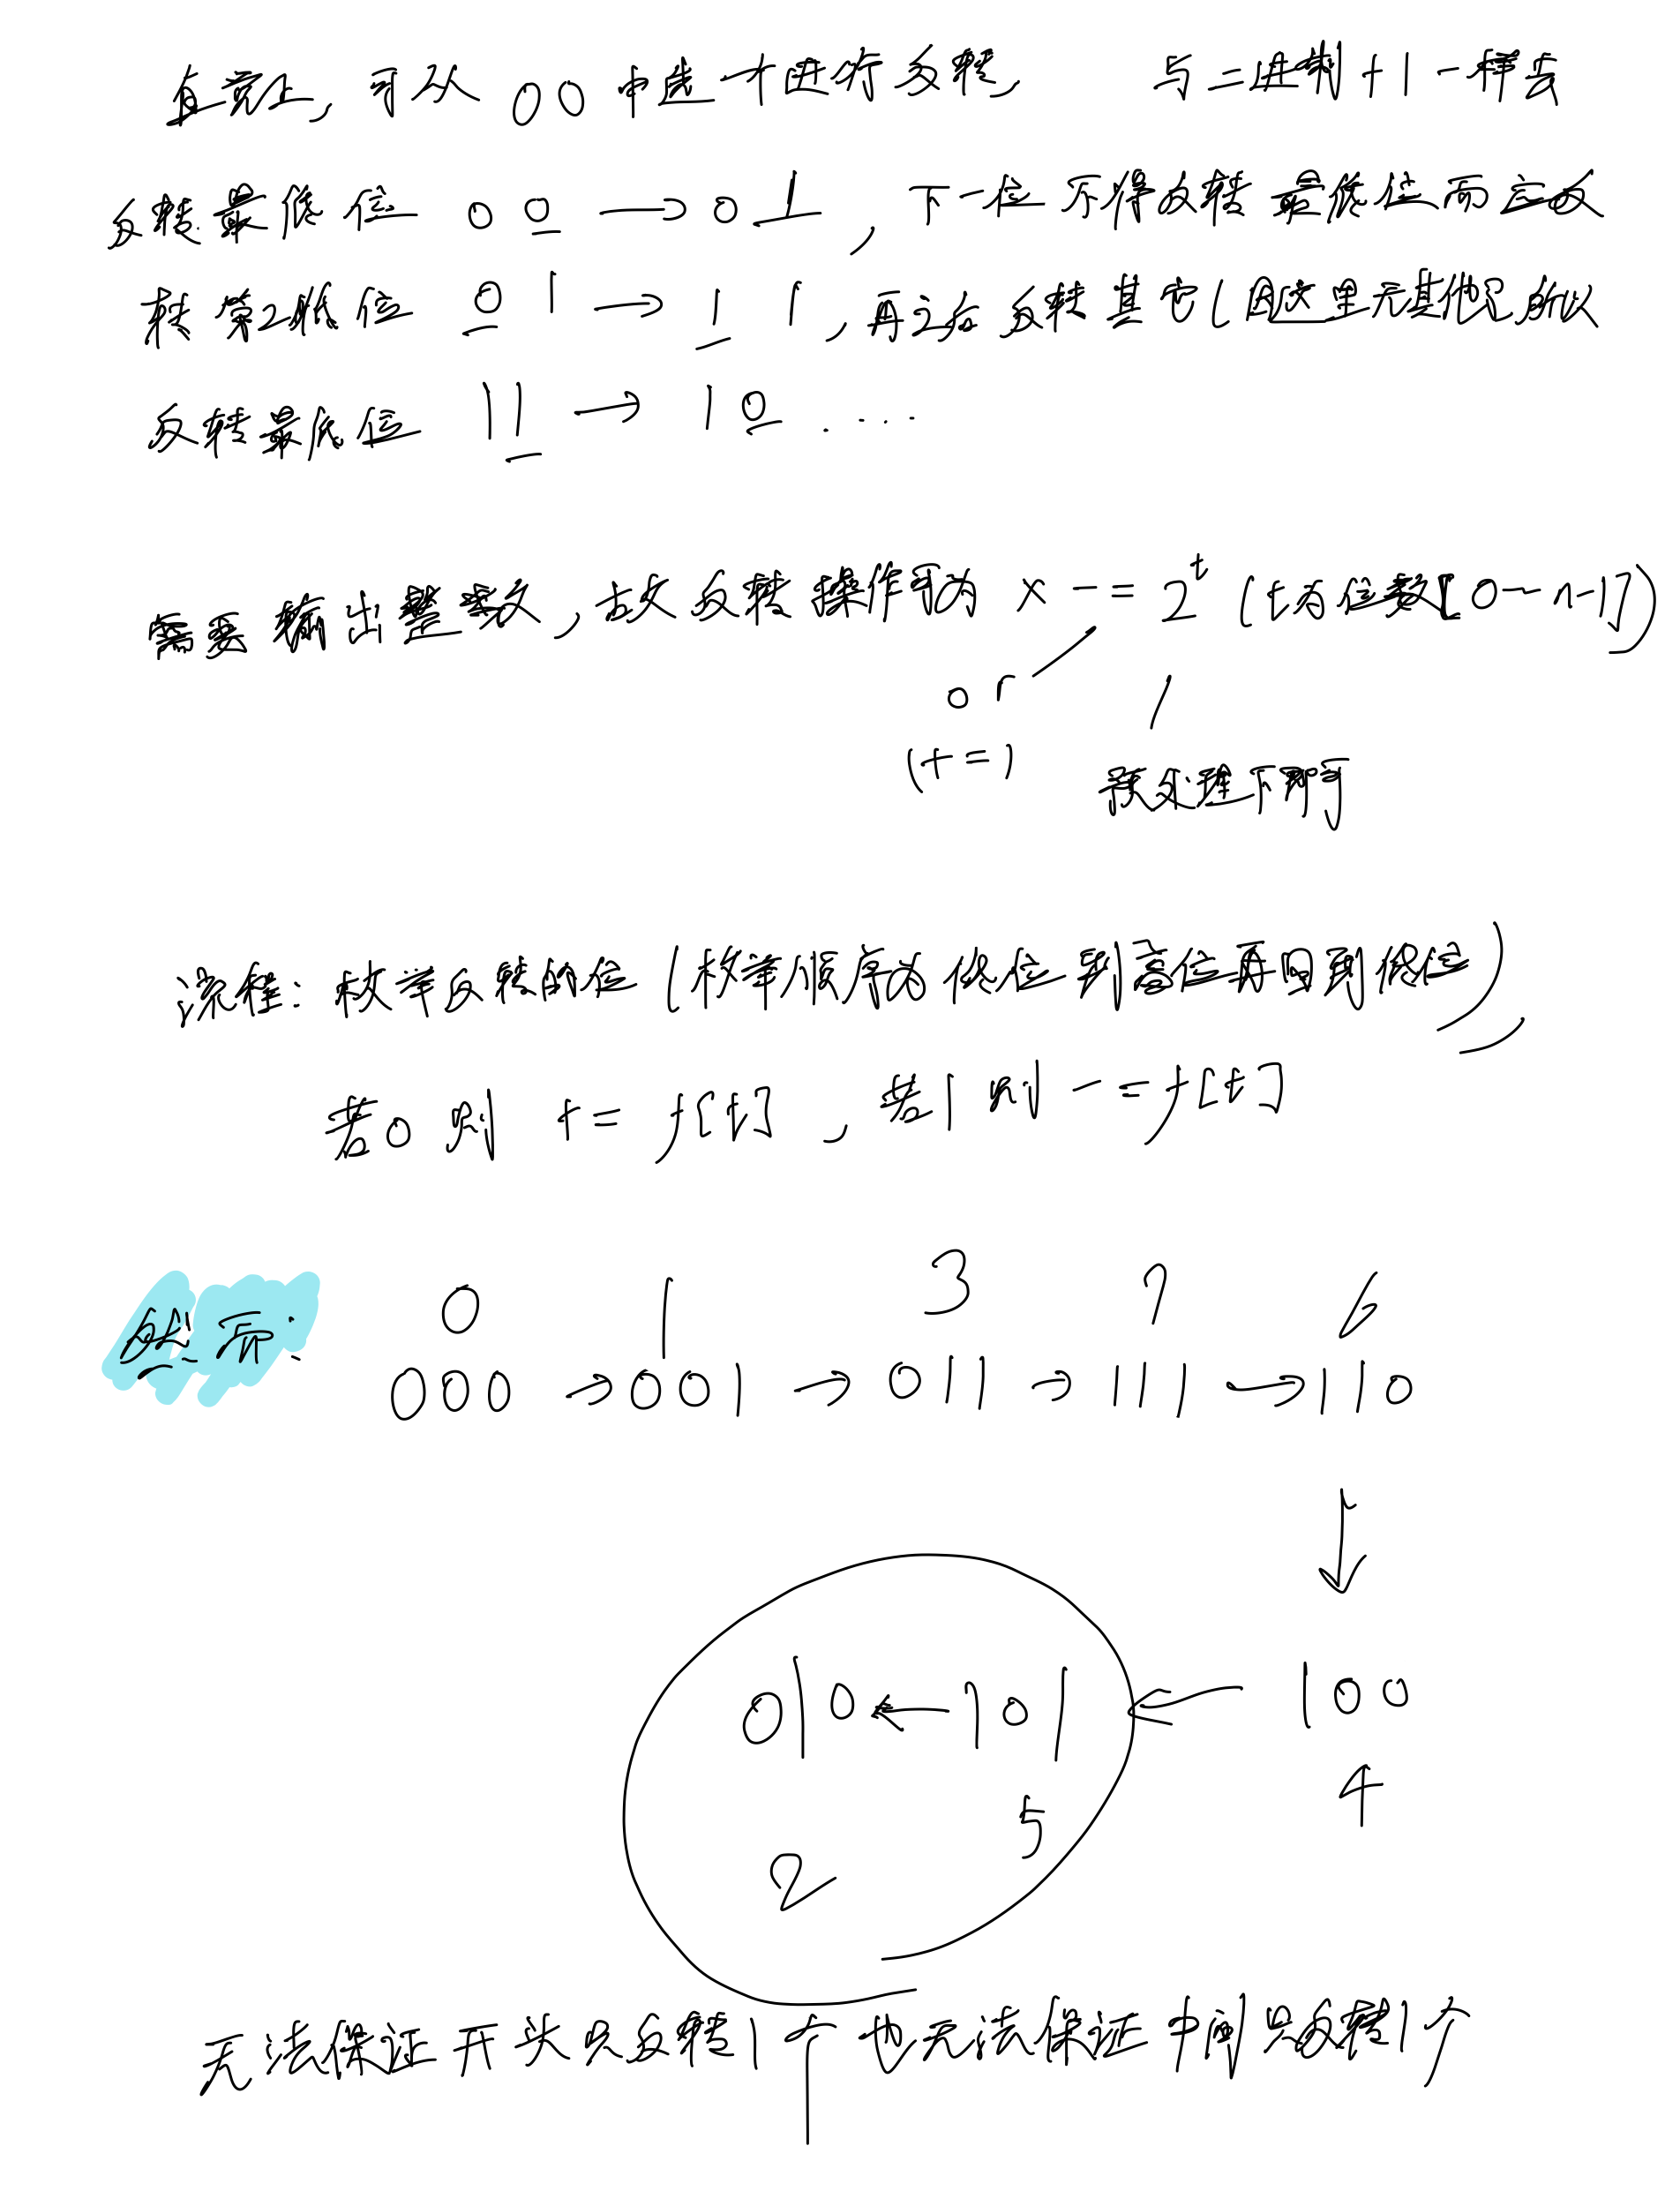 直觉上, 可从 00 中选一个进行反转, 与二进制 +1 一样去
反转最低位 00 → 01, 下一位不得反转最低位而应反
转第2低位 01 → 11, 再之后反转其它(因这里无其他足所以
反转最低位 11 → 10 ....
需要输出整数, 故反转操作可为 x -= 2^t (t为位数[0—n-1])
or
(+=) 预处理下即可
流程: 枚举反转的位 (枚举顺序为低位到高位再回到低位),
若0 则 += f[t], 若1 则 -= f[t]
0 1 3 7 6
然而: 000 → 001 → 011 → 111 → 110
↓
010 ← 101 ← 100
2 5 4
无法保证开头只反转1个 也无法保证中间只反转1个